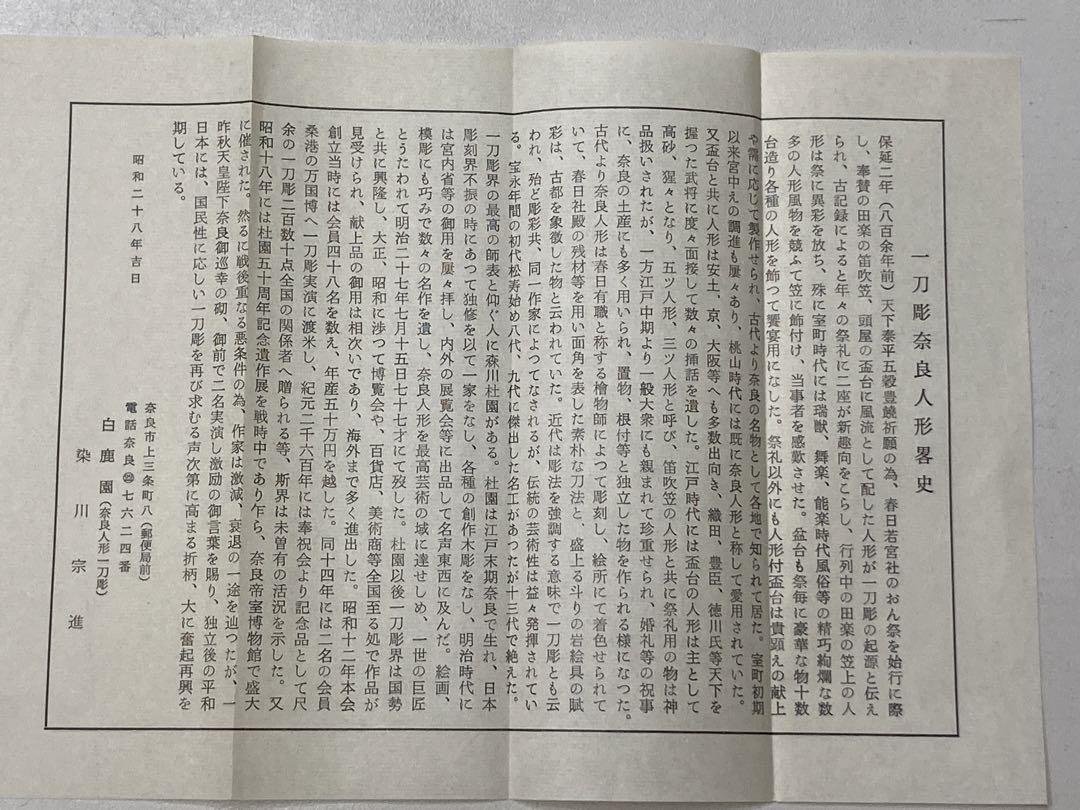 一刀彫奈良人形畧史
保延二年（八百余年前）天下泰平五穀豊饒祈願の為、春日若宮社のおん祭を始行に際
し、奉賛の田楽の笛吹笠、頭屋の盃台に風流として配した人形が一刀彫の起源と伝え
られ、古記録によると年々の祭礼に二座が新趣向をこらし、行列中の田楽の笠上の人
形は祭に異彩を放ち、殊に室町時代には瑞獣、舞楽、能楽時代風俗等の精巧絢爛な数
多の人形風物を競ふて笠に飾付け、当事者を感歎させた。盆台も祭毎に豪華な物十数
台造り各種の人形を飾つて饗宴用になした。祭礼以外にも人形付盃台は貴顕えの献上
や需に応じて製作せられ、古代より奈良の名物として各地で知られて居た。室町初期
以来宮中えの調進も屢々あり、桃山時代には既に奈良人形と称して愛用されていた。
又盃台と共に人形は安土、京、大阪等へも多数出向き、織田、豊臣、徳川氏等天下を
握つた武将に度々面接して数々の挿話を遺した。江戸時代には盃台の人形は主として
高砂、猩々となり、五ツ人形、三ツ人形と呼び、笛吹笠の人形と共に祭礼用の物は神
品扱いされたが、一方江戸中期より一般大衆にも親まれて珍重せられ、婚礼等の祝事
に、奈良の土産にも多く用いられ、置物、根付等と独立した物を作られる様になつた。
古代より奈良人形は春日有職と称する檜物師によつて彫刻し、絵所にて着色せられて
いて、春日社殿の残材等を用い面角を表した素朴な刀法と、盛上る斗りの岩絵具の賦
彩は、古都を象徴した物と云われていた。近代は彫法を強調する意味で一刀彫とも云
われ、殆ど彫彩共、同一作家によつてなされるが、伝統の芸術性は益々発揮されてい
る。宝永年間の初代松寿始め八代、九代に傑出した名工があつたが十三代で絶えた。
一刀彫界の最高の師表と仰ぐ人に森川杜園がある。杜園は江戸末期奈良で生れ、日本
彫刻界不振の時にあつて独修を以て一家をなし、各種の創作木彫をなし、明治時代に
は宮内省等の御用を屢々拝し、内外の展覧会等に出品して名声東西に及んだ。絵画、
模彫にも巧みで数々の名作を遺し、奈良人形を最高芸術の域に達せしめ、一世の巨匠
とうたわれて明治二十七年七月十五日七十七才にて歿した。杜園以後一刀彫界は国勢
と共に興隆し、大正、昭和に渉つて博覧会や、百貨店、美術商等全国至る処で作品が
見受けられ、献上品の御用は相次いであり、海外まで多く進出した。昭和十二年本会
創立当時には会員四十八名を数え、年産五十万円を越した。同十四年には二名の会員
桑港の万国博へ一刀彫実演に渡米し、紀元二千六百年には奉祝会より記念品として尺
余の一刀彫二百数十点全国の関係者へ贈られる等、斯界は未曽有の活況を示した。又
昭和十八年には杜園五十周年記念遺作展を戦時中であり乍ら、奈良帝室博物館で盛大
に催された。然るに戦後重なる悪条件の為、作家は激減、衰退の一途を辿つたが、一
昨秋天皇陛下奈良御巡幸の砌、御前で二名実演し激励の御言葉を賜り、独立後の平和
日本には、国民性に応しい一刀彫を再び求むる声次第に高まる折柄、大に奮起再興を
期している。
昭和二十八年吉日
奈良市上三条町八（郵便局前）
電話奈良㊁七六二四番
白鹿園（奈良人形一刀彫）
染川宗進